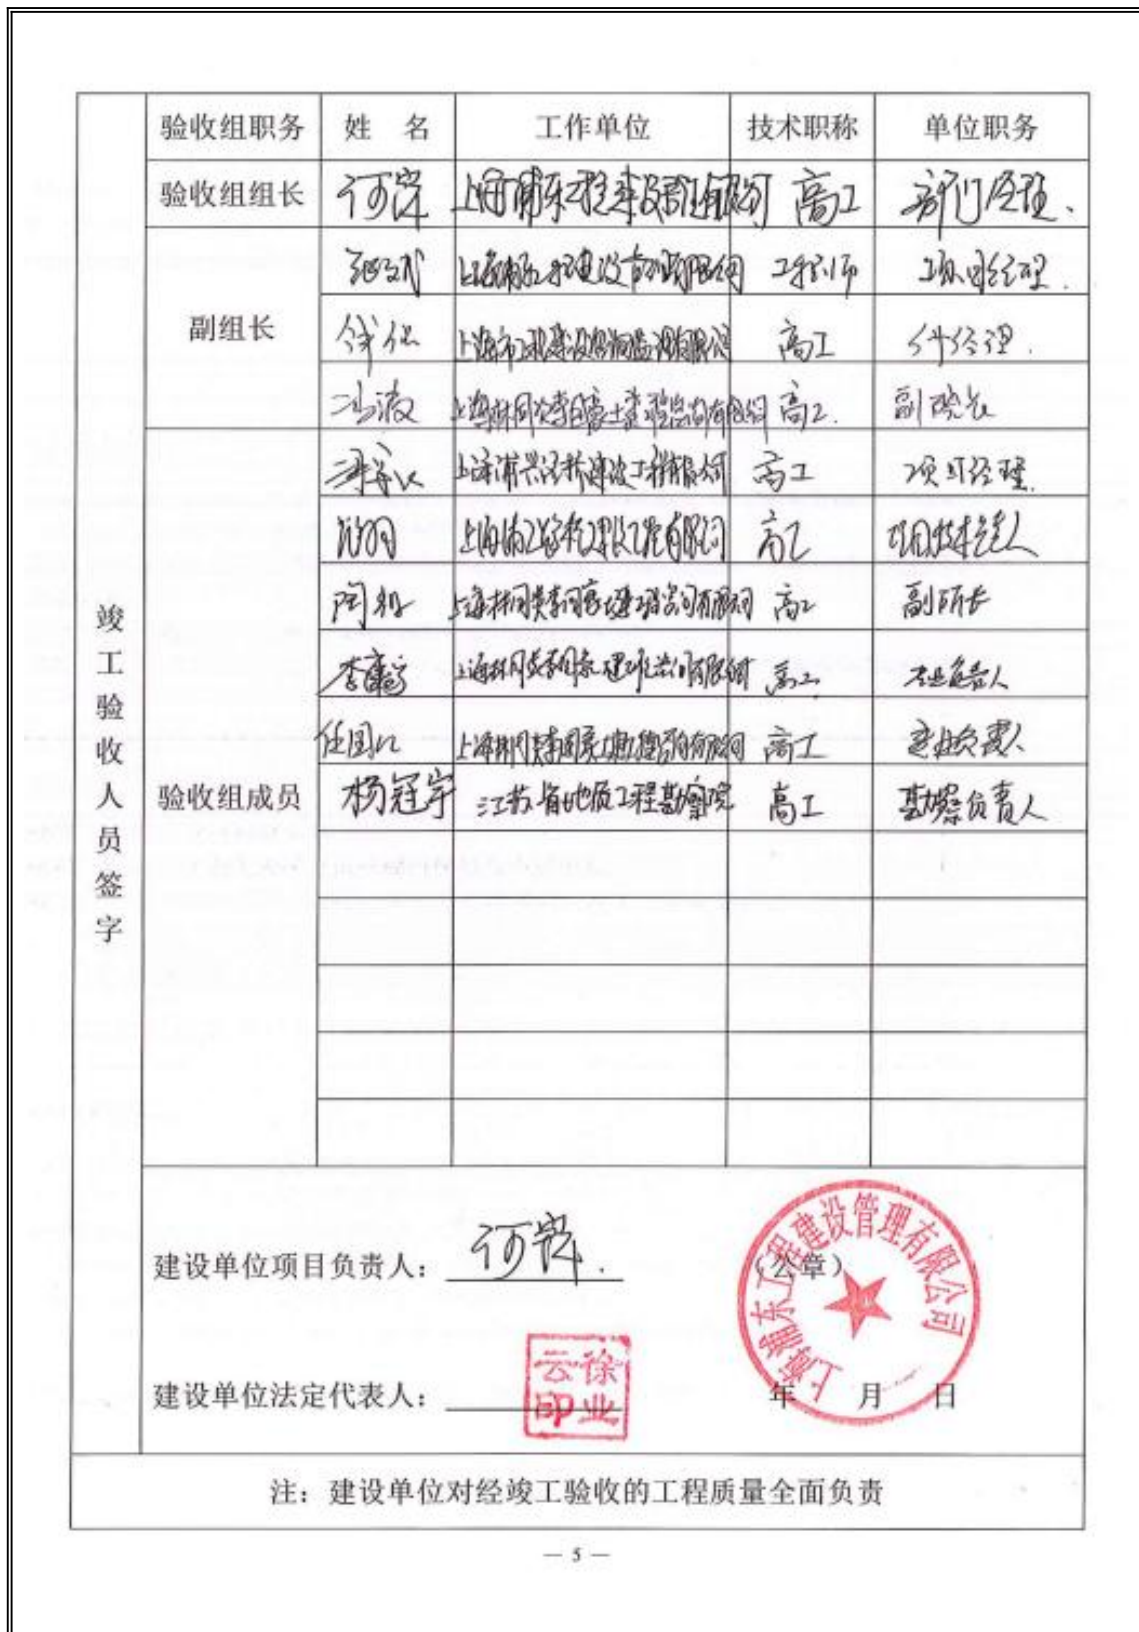 验收组职务 姓 名 工作单位 技术职称 单位职务
验收组组长 何 上海浦东工程建设管理有限公司 高工 部门经理.
上海浦东工程建设管理有限公司 工程师 项目经理.
副组长
上海市工程建设咨询监理有限公司 高工 经理.
上海林同炎李国豪土建工程咨询有限公司 高工. 副院长
上海浦兴路桥建设工程有限公司 高工 项目经理.
上海浦兴路桥建设工程有限公司 高工 项目技术负责人
陶 上海林同炎李国豪土建工程咨询有限公司 高工 副所长
李 上海林同炎李国豪土建工程咨询有限公司 高工 专业负责人
任国 上海林同炎李国豪土建工程咨询有限公司 高工 专业负责人
验收组成员 杨冠宇 江苏省地质工程勘察院 高工 勘察负责人
竣工验收人员签字
建设单位项目负责人: 何
(公章)
上海浦东工程建设管理有限公司
建设单位法定代表人:
徐业云印
年 月 日
注: 建设单位对经竣工验收的工程质量全面负责
— 5 —